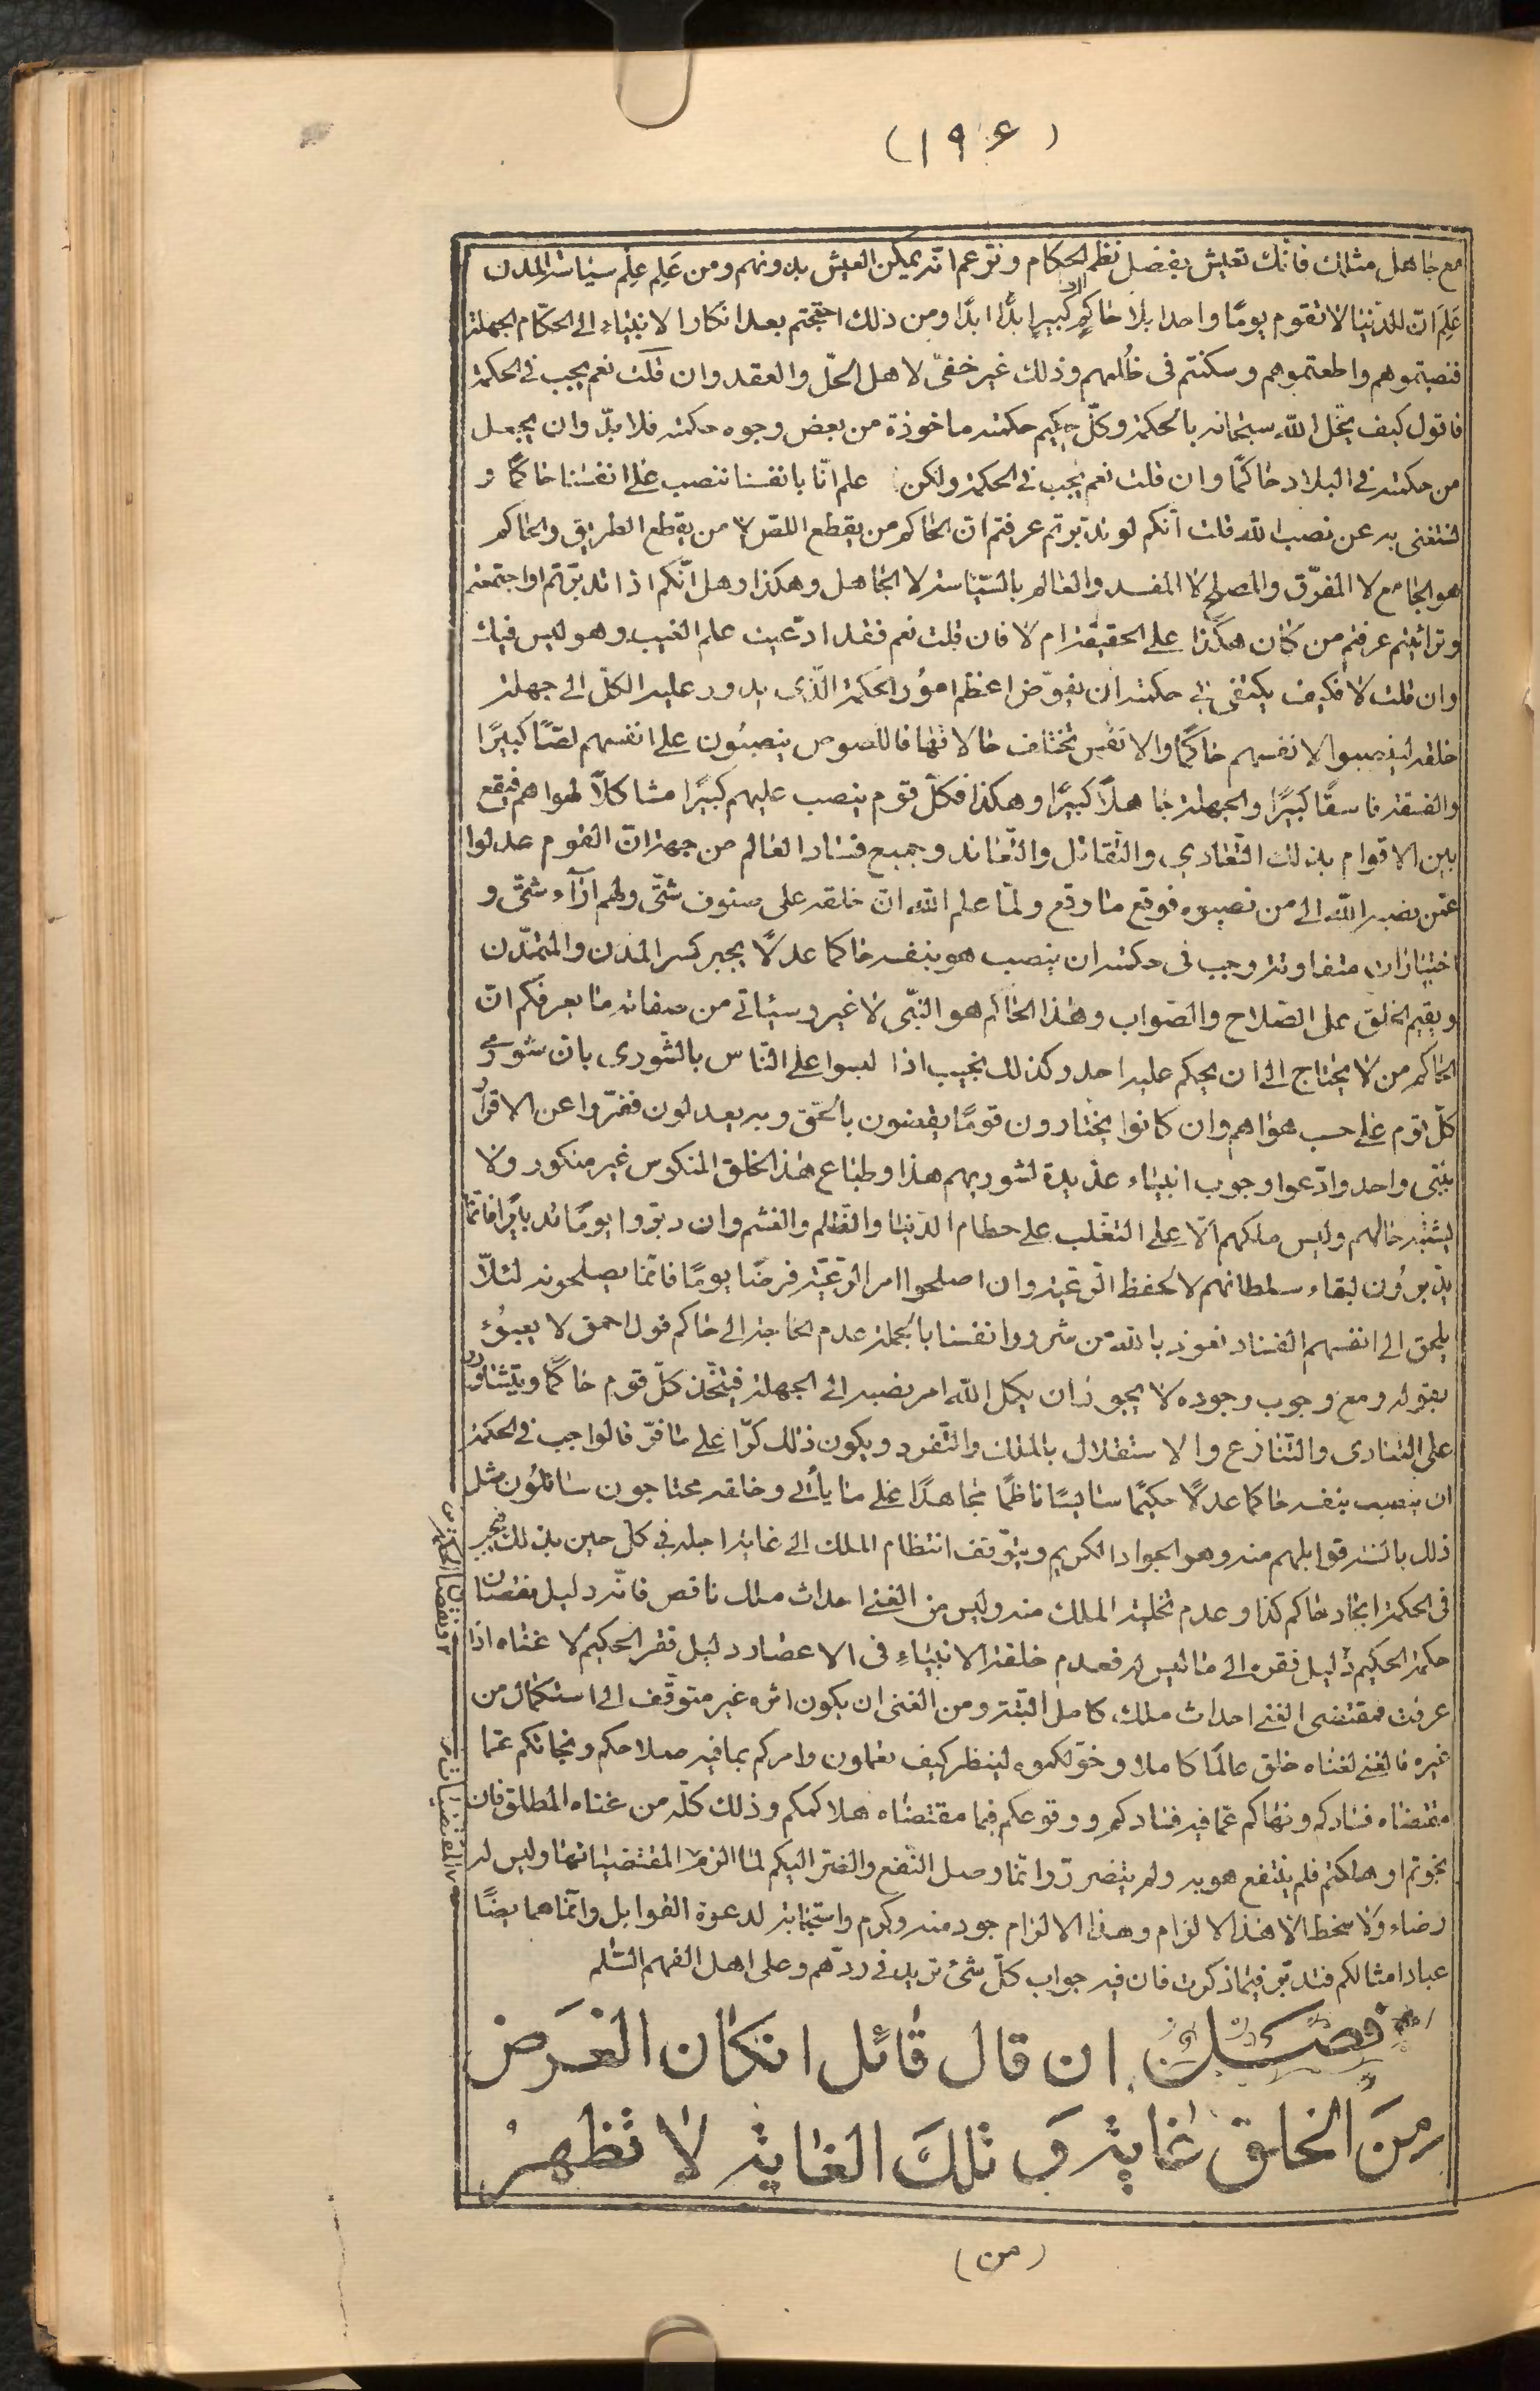 (١٩٤)
مع جاهل مثلك فانّك تعيش بفضل نظم الحكام وتزعم انّه يمكن العيش بدونهم ومن عَلِم عِلم سياسة المدن
عَلِمَ انّ للدّنيا لا تقوم يومًا واحدا بلا حاكم كبيرٍ ابدًا ابدًا ومن ذلك احتجتم بعد انكار الانبياء الى الحكّام الجهلة
فنصبتموهم واطعتموهم وسكنتم فى ظلهم وذلك غير خفىّ لاهل الحلّ والعقد وان قلت نعم يجب فى الحكمة
فاقول كيف يخل اللّه سبحانه بالحكمة وكلّ حكيم حكمته ماخوذة من بعض وجوه حكمته فلا بدّ وان يجعل
من حكمته فى البلاد حاكمًا وان قلت نعم يجب فى الحكمة ولكن علم انّا بانفسنا ننصب على انفسنا حاكمًا و
نستغنى به عن نصب اللّه قلت انّكم لو تدبرتم عرفتم ان الحاكم من يقطع اللص لا من يقطع الطريق والحاكم
هو الجامع لا المفرّق والمصلح لا المفسد والعالم بالسّياسة لا الجاهل وهكذا وهل انّكم اذا تدبرتم واجتمعتم
وترائيتم عرفتم من كان هكذا على الحقيقة ام لا فان قلت نعم فقد ادّعيت علم الغيب وهو ليس فيك
وان قلت لا فكيف يكتفى فى حكمته ان يفوّض اعظم امور الحكمة الّذى يدور عليه الكلّ الى جهلة
خلقه لينصبوا لانفسهم حاكمًا والانفس تختلف حالاتها فاللصوص ينصبون على انفسهم لصًا كبيرًا
والفسقة فاسقًا كبيرًا والجهلة جاهلًا كبيرًا وهكذا فكلّ قوم ينصب عليهم كبيرًا مشاكلًا لهواهم فيقع
بين الاقوام بذلك التّعادى والتّقاتل والتّعاند وجميع فساد العالم من جهة انّ القوم عدلوا
عمّن نصبه اللّه الى من نصبوه فوقع ما وقع ولمّا علم اللّه ان خلقه على صنوف شتّى ولهم آراء شتّى و
اختيارات متفاوتة وجب فى حكمته ان ينصب هو بنفسه حاكما عدلًا يجبر كسر المدن والمتمدّن
ويقيم الخلق على الصّلاح والصّواب وهذا الحاكم هو النبّى لا غير وسياتى من صفاته ما يعرفكم انّ
الحاكم من لا يحتاج الى ان يحكم عليه احد وكذلك نجيب اذا لبسوا على النّاس بالشّورى بان شورى
كلّ قوم على حسب هواهم وان كانوا يختارون قومًا يقضون بالحّق وبه يعدلون ففرّوا عن الاقرار
بنبّى واحد وادّعوا وجوب انبياء عديدة لشوريهم هذا وطباع هذا الخلق المنكوس غير منكور ولا
يشتبه حالهم وليس ملكهم الّا على التغّلب على حطام الدّنيا والظّلم والغشم وان دبّروا يومًا تدبايرًا فانّما
يدبرون لبقاء سلطانهم لا لحفظ الرّعية وان اصلحوا امر الرّعيّة فرضًا يومًا فانّما يصلحونه لئلّا
يلحق الى انفسهم الفساد نعوذ باللّه من شرور انفسنا بالجملة عدم الحاجة الى حاكم قول احمق لا يعبؤ
بقوله ومع وجوب وجوده لا يجوز ان يكل اللّه امر نصبه الى الجهلة فيتّخذ كلّ قوم حاكمًا ويتشاورن
على التعادى والتّنازع والاستقلال بالملك والتّفرد ويكون ذلك كرّا على ما فرّ فالواجب فى الحكمة
ان ينصب بنفسه حاكما عدلًا حكيمًا سائسًا ناظمًا مجاهدًا على ما يأتى وخلقه محتاجون سائلون مثل
ذلك بالسنة قوابلهم منه وهو الجواد الكريم ويتوّقف انتظام الملك الى غاية اجله فى كل حين بذلك فيجب
فى الحكمة ايجاد حاكم كذا وعدم تخلية الملك منه وليس من الغنى احداث ملك ناقص فانّه دليل نقصان
حكمة الحكيم دليل فقره الى ما ليس له فعدم خلقة الانبياءِ فى الاعصار دليل فقر الحكيم لا غناه اذا
عرفت فمقتضى الغنى احداث ملك كامل البتّة ومن الغنى ان يكون اثره غير متوقّف الى استكمال من
غيره فالغنى لغناه خلق عالمًا كاملا وخوّلكموه لينظر كيف تعملون وامركم بما فيه صلاحكم ونجاتكم عمّا
مقتضاه فسادكم ونهاكم عمّا فيه فسادكم ووقوعكم فيما مقتضاه هلاككم وذلك كلّه من غناه المطلق فان
نجوتم او هلكتم فلم ينتفع هو به ولم يتضرر وانّما وصل النّفع والضّر اليكم لما الزم المقتضياتها وليس له
رضاء ولا سخط الّا هذا الالزام وهذا الالزام جود منه وكرم واستجابة لدعوة القوابل وانّما هما ايضًا
عباد امثالكم فتدبّر فيما ذكرت فان فيه جواب كلّ شئ تريد فى ردّهم وعلى اهل الفهم السّلم
فصل ان قال قائل ان كان الغرض
من الخلق غاية و تلك الغاية لا تظهر
(من)